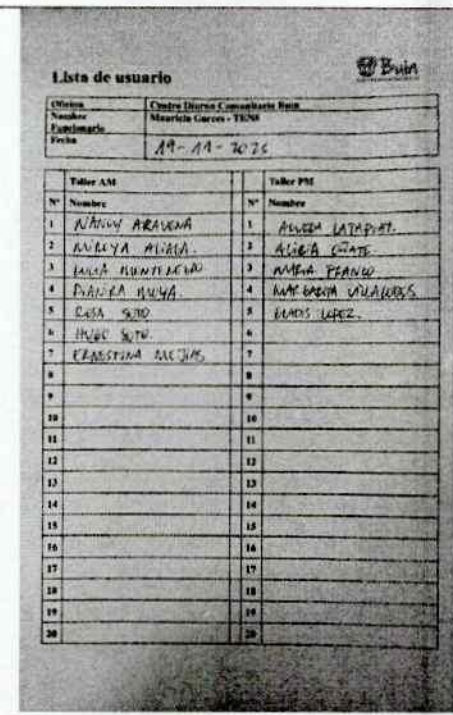 Buin
Lista de usuario
Oficina Centro Diurno Comunitario Buin
Nombre Funcionario Mauricio Garces - TENS
Fecha 19-11-2025
Taller AM Taller PM
N° Nombre N° Nombre
1 NANCY ARAVENA 1 LATAPIAT.
2 MIREYA ALIAGA. 2 ALICIA OÑATE.
3 LUCIA MONTENEGRO 3 MARIA FRANCO
4 DIANIRA MOYA. 4 MARGARITA VILLALOBOS
5 ROSA SOTO 5 GLADIS LOPEZ.
6 HUGO SOTO. 6
7 ERNESTINA MEJIAS 7
8 8
9 9
10 10
11 11
12 12
13 13
14 14
15 15
16 16
17 17
18 18
19 19
20 20